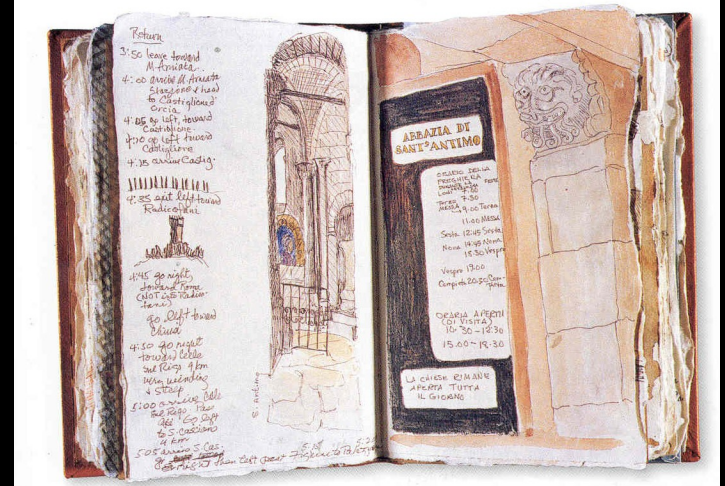 Return
3:50 leave toward
M. Amiata
4:00 arrive M. Amiata
Stazione & head
to Castiglione d'
Orcia
4:05 go left, toward
Castiglione
4:10 go left toward
Castiglione
4:25 arrive Castig.
4:35 exit left toward
Radicofani
4:45 go right,
toward Roma
(NOT
go left toward
Chiusi
4:50 go right
toward Celle
sul Rigo 9 km
winding
& steep
5:00 arrive Celle
sul Rigo.
Go left
to S. Casciano
4 km
5:05 arrive S. Cas.
right then left past
S. Antimo
ABBAZIA DI
SANT'ANTIMO
ORARIO DELLA
PREGHIERA
7.30
MESSA → 9.00 Terza
11:00 Messa
Sesta 12:45 Sesta
Nona 14:45 Nona
18:30 Vespro
Vespro 19:00
Compieta 20:30
ORARIA APERTI
(DI VISITA)
10:30 - 12:30
15.00 - 18.30
LA CHIESE RIMANE
APERTA TUTTA
IL GIORNO